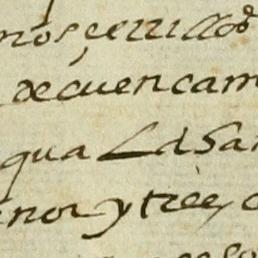 nos çerrillos
decuencam
qua Ldsan
nor y tres